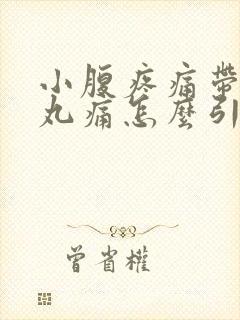 小腹疼痛帶
丸痛怎麼引
曾省權